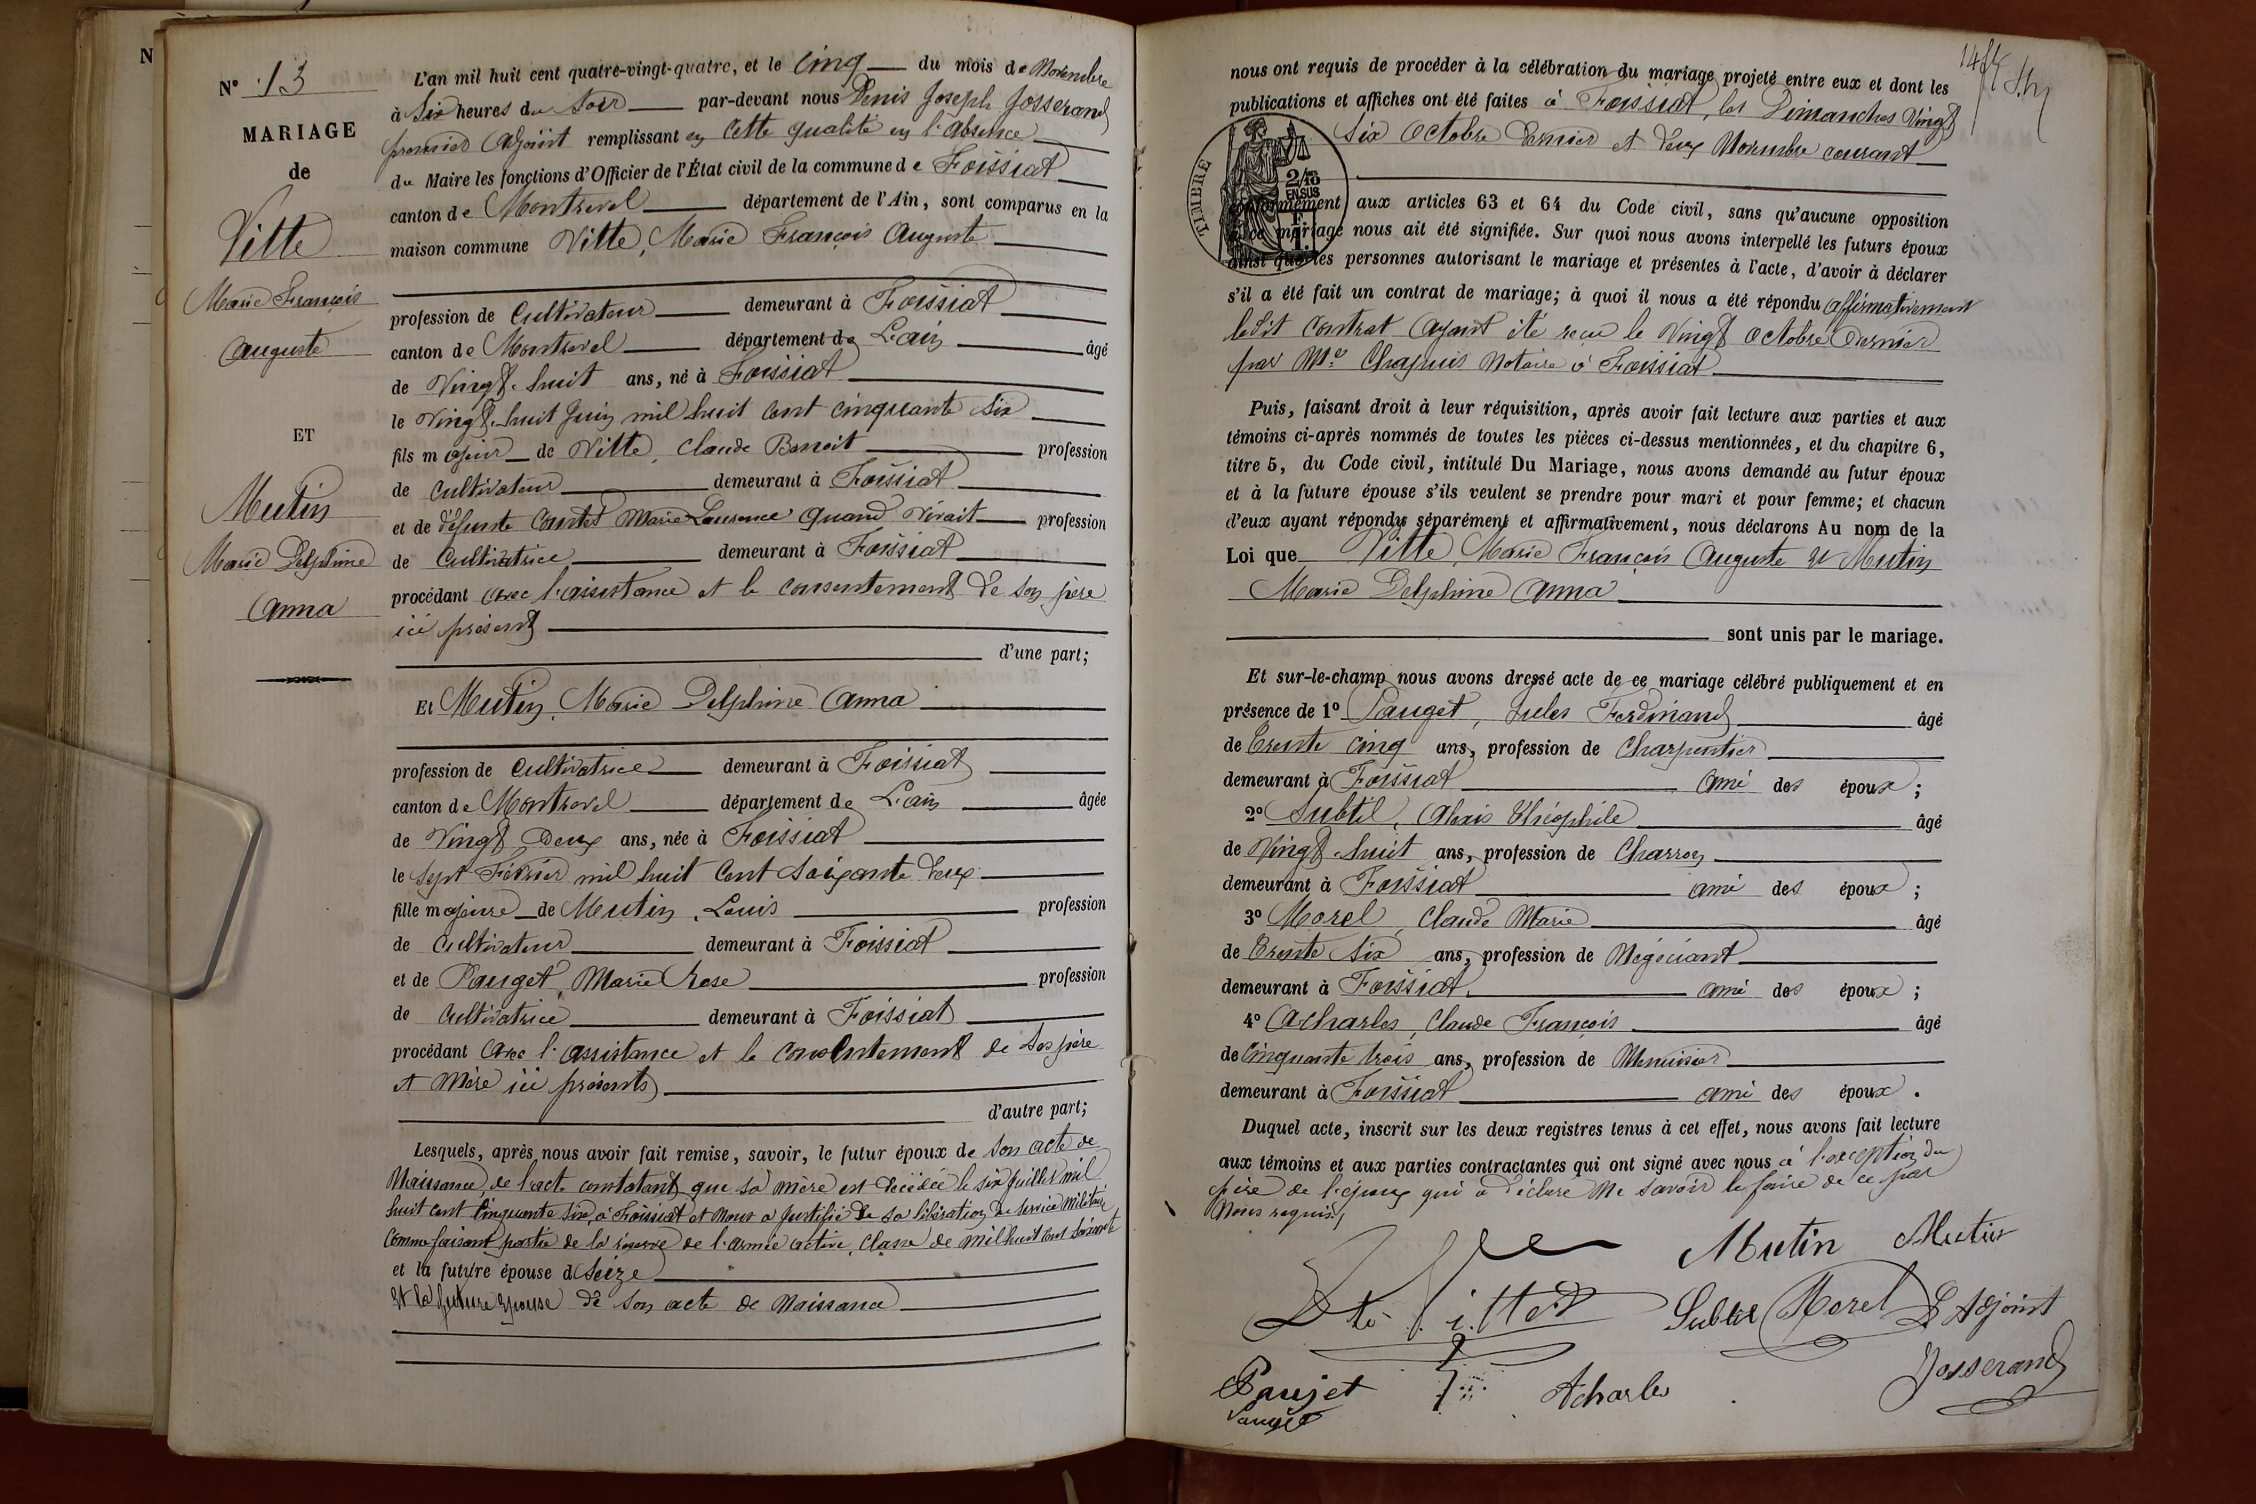 N
N° 13
MARIAGE
de
Vitte
Marie François
Auguste
ET
Mutin
Marie Delphine
Anna
L'an mil huit cent quatre-vingt-quatre, et le Cinq du mois de Novembre
à Six heures du Soir par-devant nous Denis Joseph Josserand
premier Adjoint remplissant en cette qualité en l'absence
du Maire les fonctions d'Officier de l'État civil de la commune de Foissiat
canton de Montrevel département de l'Ain, sont comparus en la
maison commune Vitte, Marie François Auguste
profession de Cultivateur demeurant à Foissiat
canton de Montrevel département de L'ain âgé
de Vingt-huit ans, né à Foissiat
le Vingt-huit Juin mil huit cent cinquante six
fils majeur de Vitte, Claude Benoit profession
de Cultivateur demeurant à Foissiat
et de défunte Marie Laurence quand vivait profession
de Cultivatrice demeurant à Foissiat
procédant avec l'assistance et le consentement de son père
ici présent
d'une part;
Et Mutin, Marie Delphine Anna
profession de Cultivatrice demeurant à Foissiat
canton de Montrevel département de L'ain âgée
de Vingt Deux ans, née à Foissiat
le Sept Février mil huit cent soixante deux
fille majeure de Mutin, Louis profession
de Cultivateur demeurant à Foissiat
et de Pauget, Marie Rose profession
de Cultivatrice demeurant à Foissiat
procédant avec l'assistance et le consentement de ses père
et mère ici présents
d'autre part;
Lesquels, après nous avoir fait remise, savoir, le futur époux de son acte de
Naissance, de l'acte constatant que sa mère est décédée le six Juillet mil
huit cent cinquante six à Foissiat et nous a justifié de sa libération du service militaire
comme faisant partie de la réserve de l'armée active, classe de mil huit cent soixante
et la future épouse d Seize
et la future épouse de son acte de Naissance
nous ont requis de procéder à la célébration du mariage projeté entre eux et dont les
publications et affiches ont été faites à Foissiat, les Dimanches Vingt
Six Octobre dernier et deux Novembre courant
TIMBRE
2/10
EN SUS
conformément aux articles 63 et 64 du Code civil, sans qu'aucune opposition
à ce mariage nous ait été signifiée. Sur quoi nous avons interpellé les futurs époux
ainsi que les personnes autorisant le mariage et présentes à l'acte, d'avoir à déclarer
s'il a été fait un contrat de mariage; à quoi il nous a été répondu affirmativement
ledit contrat ayant été reçu le Vingt Octobre dernier
par Me Chapuis Notaire à Foissiat
Puis, faisant droit à leur réquisition, après avoir fait lecture aux parties et aux
témoins ci-après nommés de toutes les pièces ci-dessus mentionnées, et du chapitre 6,
titre 5, du Code civil, intitulé Du Mariage, nous avons demandé au futur époux
et à la future épouse s'ils veulent se prendre pour mari et pour femme; et chacun
d'eux ayant répondu séparément et affirmativement, nous déclarons Au nom de la
Loi que Vitte, Marie François Auguste et Mutin
Marie Delphine Anna
sont unis par le mariage.
Et sur-le-champ nous avons dressé acte de ce mariage célébré publiquement et en
présence de 1° Pauget, Jules Ferdinand âgé
de Trente cinq ans, profession de Charpentier
demeurant à Foissiat ami des époux;
2° Subtil, Alexis Théophile âgé
de Vingt-huit ans, profession de Charron
demeurant à Foissiat ami des époux;
3° Morel, Claude Marie âgé
de Trente Six ans, profession de Négociant
demeurant à Foissiat ami des époux;
4° Acharles, Claude François âgé
de Cinquante trois ans, profession de Menuisier
demeurant à Foissiat ami des époux.
Duquel acte, inscrit sur les deux registres tenus à cet effet, nous avons fait lecture
aux témoins et aux parties contractantes qui ont signé avec nous à l'exception du
père de l'époux qui a déclaré ne savoir le faire de ce par
Nous requis.
Mutin Mutin
Subtil Morel L'Adjoint
Josserand
Paujet Acharles
Pauget